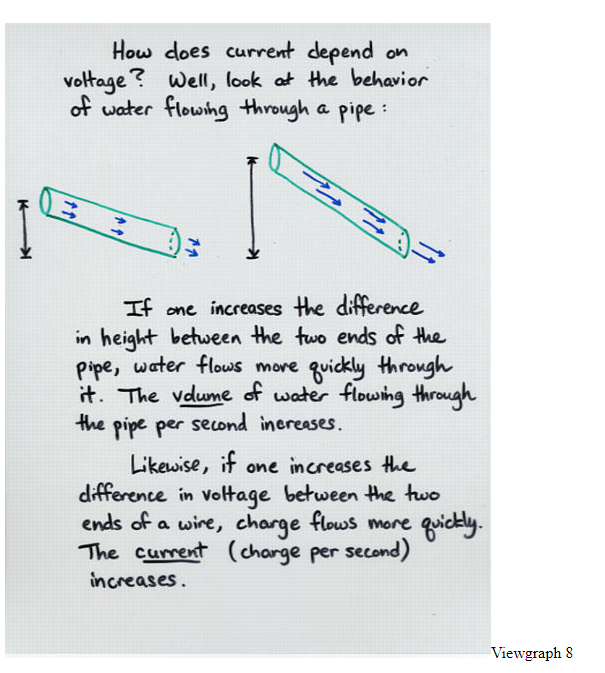 How does current depend on
voltage? Well, look at the behavior
of water flowing through a pipe:
If one increases the difference
in height between the two ends of the
pipe, water flows more quickly through
it. The volume of water flowing through
the pipe per second increases.
Likewise, if one increases the
difference in voltage between the two
ends of a wire, charge flows more quickly.
The current (charge per second)
increases.
Viewgraph 8